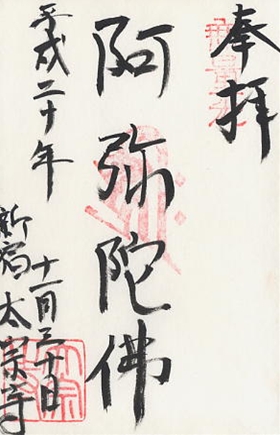 奉拝
阿弥陀佛
平成二十年
十一月三十日
新宿太宗寺